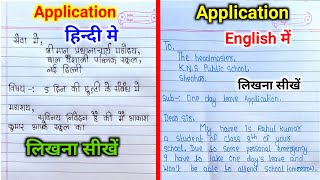 Application
हिन्दी मे
सेवा में,
श्रीमान प्रधानाचार्य महोदय,
बाल वैशाली पब्लिक स्कूल,
नई दिल्ली
विषय :- 5 दिन की छुट्टी के संबंध में
महाशय,
सविनय निवेदन है की मैं आकाश
कुमार आपके स्कूल का
लिखना सीखें
Application
English में
To,
The headmaster,
K.N.S Public School,
लिखना सीखें
Sub:- One day leave Application.
Dear Sir,
My name is Rahul Kumar
a student of class 8th of your
school. Due to some personal emergency
I have to take one day's leave and
won't be able to attend school tomorrow.